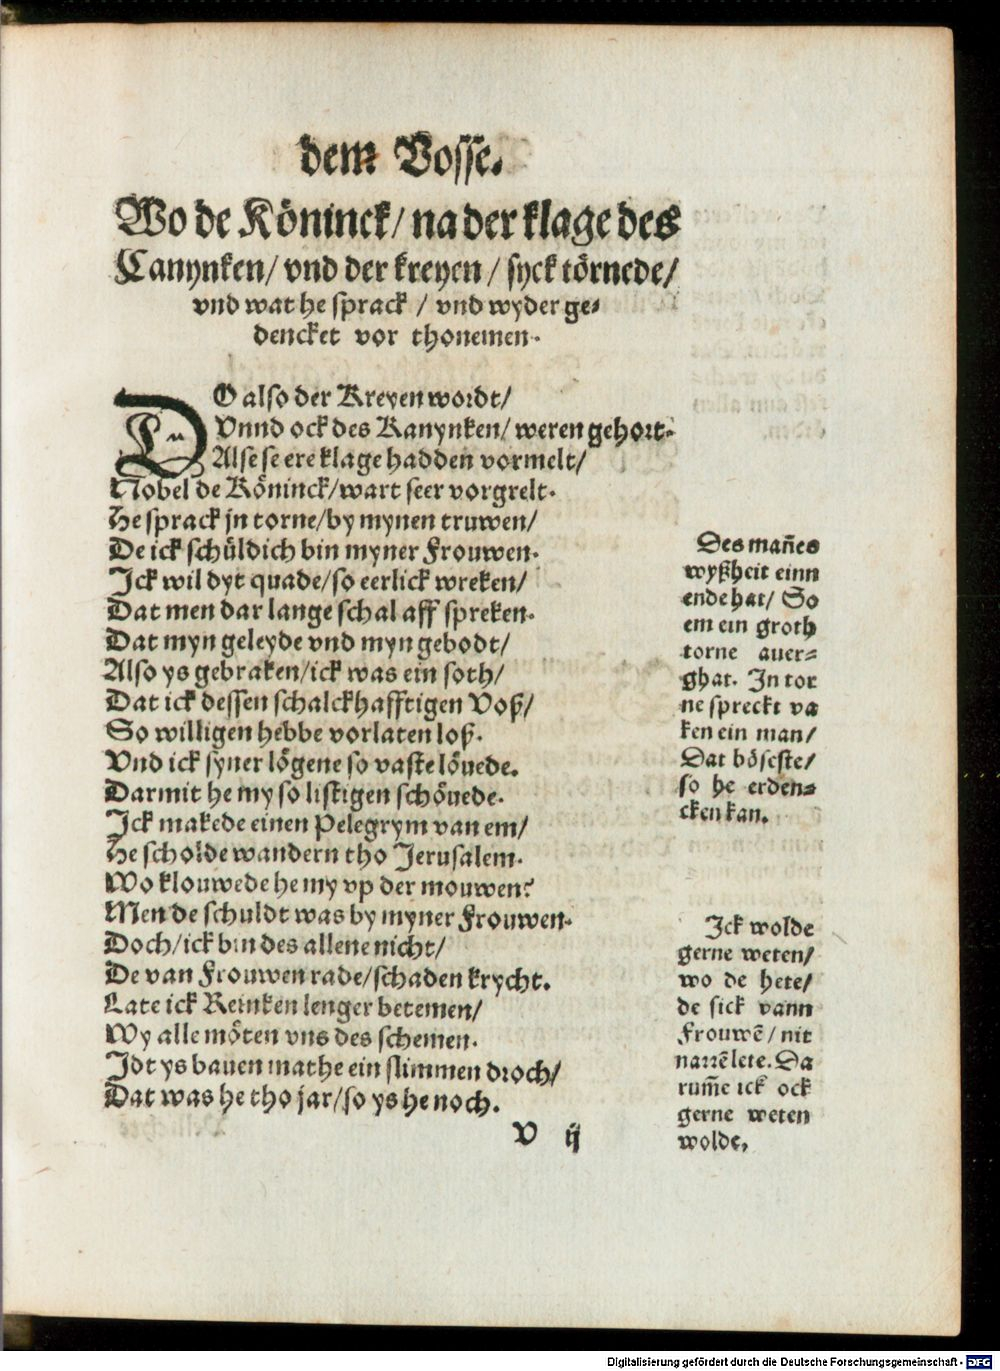 dem Vosse.
Wo de Köninck/ na der klage des
Canynken/ vnd der kreyen / syck törnede/
vnd wat he sprack / vnd wyder ge-
dencket vor thonemen.
DO also der Kreyen wordt/
Vnnd ock des Kanynken/ weren gehort.
Alse se ere klage hadden vormelt/
Nobel de Köninck/wart seer vorgrelt.
He sprack jn torne/by mynen truwen/
De ick schüldich bin myner Frouwen.
Ick wil dyt quade/so eerlick wreken/
Dat men dar lange schal aff spreken.
Dat myn geleyde vnd myn gebodt/
Also ys gebraken/ick was ein soth/
Dat ick dessen schalckhafftigen Voß/
So willigen hebbe vorlaten loß.
Vnd ick syner lögene so vaste löuede.
Darmit he my so listigen schöuede.
Ick makede einen Pelegrym van em/
He scholde wandern tho Jerusalem.
Wo klouwede he my vp der mouwen?
Men de schuldt was by myner Frouwen.
Doch/ick bin des allene nicht/
De van Frouwen rade/schaden krycht.
Late ick Reinken lenger betemen/
Wy alle möten vns des schemen.
Idt ys bauen mathe ein slimmen droch/
Dat was he tho jar/so ys he noch.
v ij
Des mañes
wyßheit einn
ende hat/ So
em ein groth
torne auer-
ghat. In tor
ne spreckt va
ken ein man/
Dat böseste/
so he erden-
cken kan.
Ick wolde
gerne weten/
wo de hete/
de sick vann
Frouwẽ/ nit
narrẽ lete. Da
rum̃e ick ock
gerne weten
wolde.
Digitalisierung gefördert durch die Deutsche Forschungsgemeinschaft - DFG